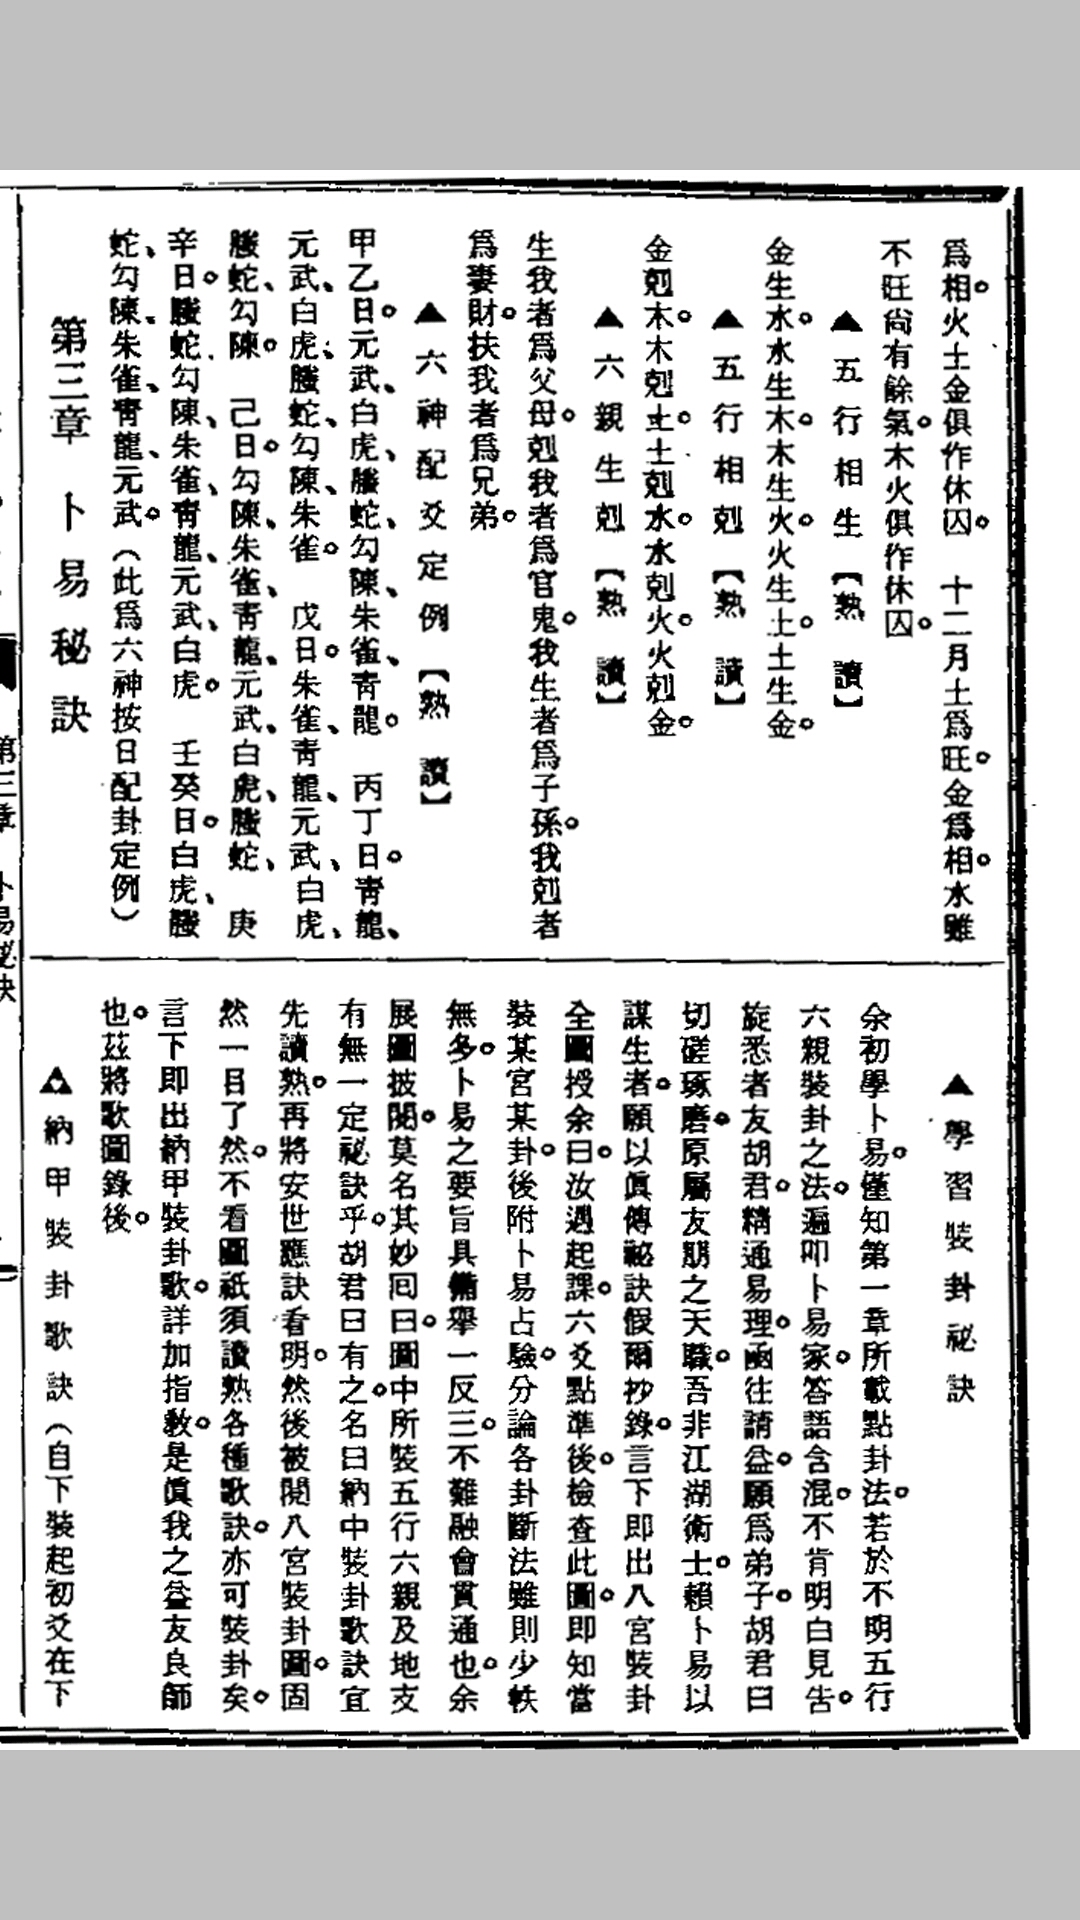 爲相。火土金俱作休囚。　十二月土爲旺。金爲相。水雖
不旺尙有餘氣。木火俱作休囚。
▲五行相生【熟讀】
金生水。水生木。木生火。火生土。土生金。
▲五行相剋【熟讀】
金剋木。木剋土。土剋水。水剋火。火剋金。
▲六親生剋【熟讀】
生我者爲父母。剋我者爲官鬼。我生者爲子孫。我剋者
爲妻財。扶我者爲兄弟。
▲六神配爻定例【熟讀】
甲乙日。元武、白虎、螣蛇、勾陳、朱雀、靑龍。　丙丁日。靑龍、
元武、白虎、螣蛇、勾陳、朱雀。　戊日。朱雀、靑龍、元武、白虎、
螣蛇、勾陳。　己日。勾陳、朱雀、靑龍、元武、白虎、螣蛇、　庚
辛日。螣蛇、勾陳、朱雀、靑龍、元武、白虎。　壬癸日。白虎、螣
蛇、勾陳、朱雀、靑龍、元武。（此爲六神按日配卦定例）
第三章　卜易秘訣
▲學習裝卦祕訣
余初學卜易。僅知第一章所載點卦法。若於不明五行
六親裝卦之法。遍叩卜易家。答語含混。不肯明白見吿。
旋悉者友胡君。精通易理。函往請益。願爲弟子。胡君曰
切磋琢磨。原屬友朋之天職。吾非江湖術士。賴卜易以
謀生者。願以眞傳祕訣假爾抄錄。言下卽出八宮裝卦
全圖授余曰。汝遇起課。六爻點準後。檢查此圖。卽知當
裝某宮某卦。後附卜易占驗。分論各卦斷法雖則少軼
無多。卜易之要旨具備舉一反三。不難融會貫通也。余
展圖披閱。莫名其妙囘曰。圖中所裝五行六親及地支
有無一定祕訣乎。胡君曰有之。名曰納中裝卦歌訣宜
先讀熟。再將安世應訣看明。然後被閱八宮裝卦圖。固
然一目了然。不看圖祇須讀熟各種歌訣。亦可裝卦矣。
言下卽出納甲裝卦歌。詳加指敎。是眞我之益友良師
也。茲將歌圖錄後。
▲納甲裝卦歌訣（自下裝起初爻在下
第三章　卜易祕訣